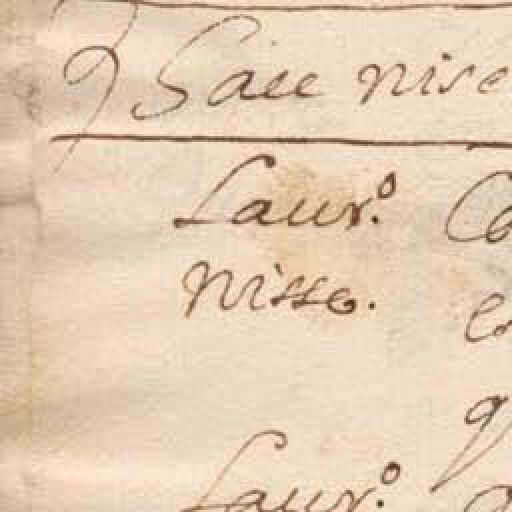 Saie nise
Laur.º Co
Nisse.
Laur.º